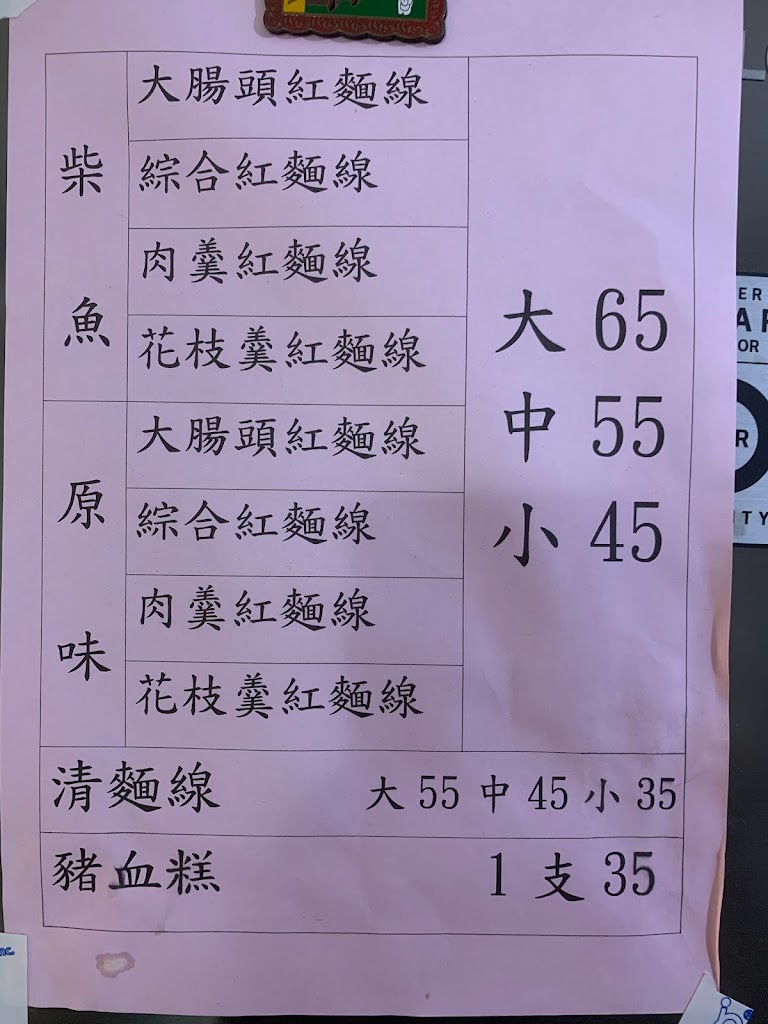 柴魚
大腸頭紅麵線
綜合紅麵線
肉羹紅麵線
花枝羹紅麵線
原味
大腸頭紅麵線
綜合紅麵線
肉羹紅麵線
花枝羹紅麵線
大 65
中 55
小 45
清麵線 大 55 中 45 小 35
豬血糕 1 支 35
ER
OR
R
ITY
nc.